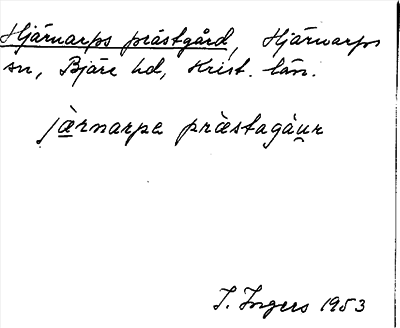 Hjärnarps prästgård, Hjärnarps
sn, Bjäre hd, Krist. län.
jæ̀rnarpa præ̀stagåu̯r
I. Ingers 1953